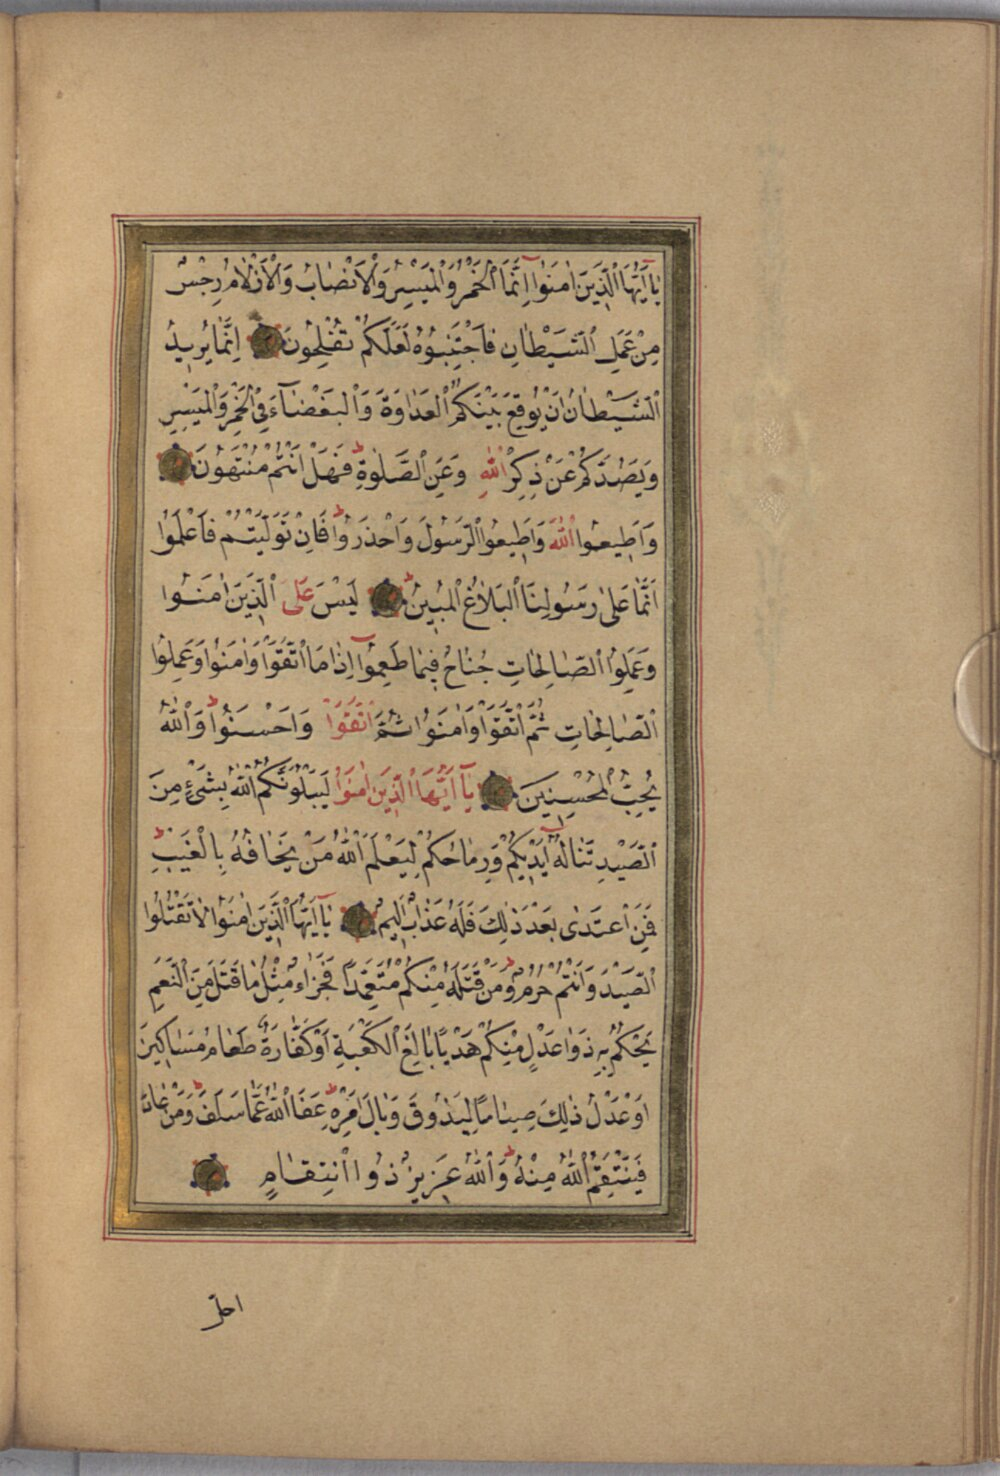 يَاۤ اَيُّهَا الَّذ۪ينَ اٰمَنُٓوا اِنَّمَا الْخَمْرُ وَالْمَيْسِرُ وَالْاَنْصَابُ وَالْاَزْلَامُ رِجْسٌ
مِنْ عَمَلِ الشَّيْطَانِ فَاجْتَنِبُوهُ لَعَلَّكُمْ تُفْلِحُونَ اِنَّمَا يُر۪يدُ
الشَّيْطَانُ اَنْ يُوقِعَ بَيْنَكُمُ الْعَدَاوَةَ وَالْبَغْضَٓاءَ فِي الْخَمْرِ وَالْمَيْسِرِ
وَيَصُدَّكُمْ عَنْ ذِكْرِ اللّٰهِ وَعَنِ الصَّلٰوةِ فَهَلْ اَنْتُمْ مُنْتَهُونَ
وَاَط۪يعُوا اللّٰهَ وَاَط۪يعُوا الرَّسُولَ وَاحْذَرُوا فَاِنْ تَوَلَّيْتُمْ فَاعْلَمُوا
اَنَّمَا عَلٰى رَسُولِنَا الْبَلَاغُ الْمُب۪ينُ لَيْسَ عَلَى الَّذ۪ينَ اٰمَنُوا
وَعَمِلُوا الصَّالِحَاتِ جُنَاحٌ ف۪يمَا طَعِمُٓوا اِذَا مَا اتَّقَوْا وَاٰمَنُوا وَعَمِلُوا
الصَّالِحَاتِ ثُمَّ اتَّقَوْا وَاٰمَنُوا ثُمَّ اتَّقَوْا وَاَحْسَنُوا وَاللّٰهُ
يُحِبُّ الْمُحْسِن۪ينَ يَاۤ اَيُّهَا الَّذ۪ينَ اٰمَنُوا لَيَبْلُوَنَّكُمُ اللّٰهُ بِشَيْءٍ مِنَ
الصَّيْدِ تَنَالُهُٓ اَيْد۪يكُمْ وَرِمَاحُكُمْ لِيَعْلَمَ اللّٰهُ مَنْ يَخَافُهُ بِالْغَيْبِ
فَمَنِ اعْتَدٰى بَعْدَ ذٰلِكَ فَلَهُ عَذَابٌ اَل۪يمٌ يَاۤ اَيُّهَا الَّذ۪ينَ اٰمَنُوا لَا تَقْتُلُوا
الصَّيْدَ وَاَنْتُمْ حُرُمٌ وَمَنْ قَتَلَهُ مِنْكُمْ مُتَعَمِّدًا فَجَزَٓاءٌ مِثْلُ مَا قَتَلَ مِنَ النَّعَمِ
يَحْكُمُ بِه۪ ذَوَا عَدْلٍ مِنْكُمْ هَدْيًا بَالِغَ الْكَعْبَةِ اَوْ كَفَّارَةٌ طَعَامُ مَسَاك۪ينَ
اَوْ عَدْلُ ذٰلِكَ صِيَامًا لِيَذُوقَ وَبَالَ اَمْرِه۪ عَفَا اللّٰهُ عَمَّا سَلَفَ وَمَنْ عَادَ
فَيَنْتَقِمُ اللّٰهُ مِنْهُ وَاللّٰهُ عَز۪يزٌ ذُو انْتِقَامٍ
احل